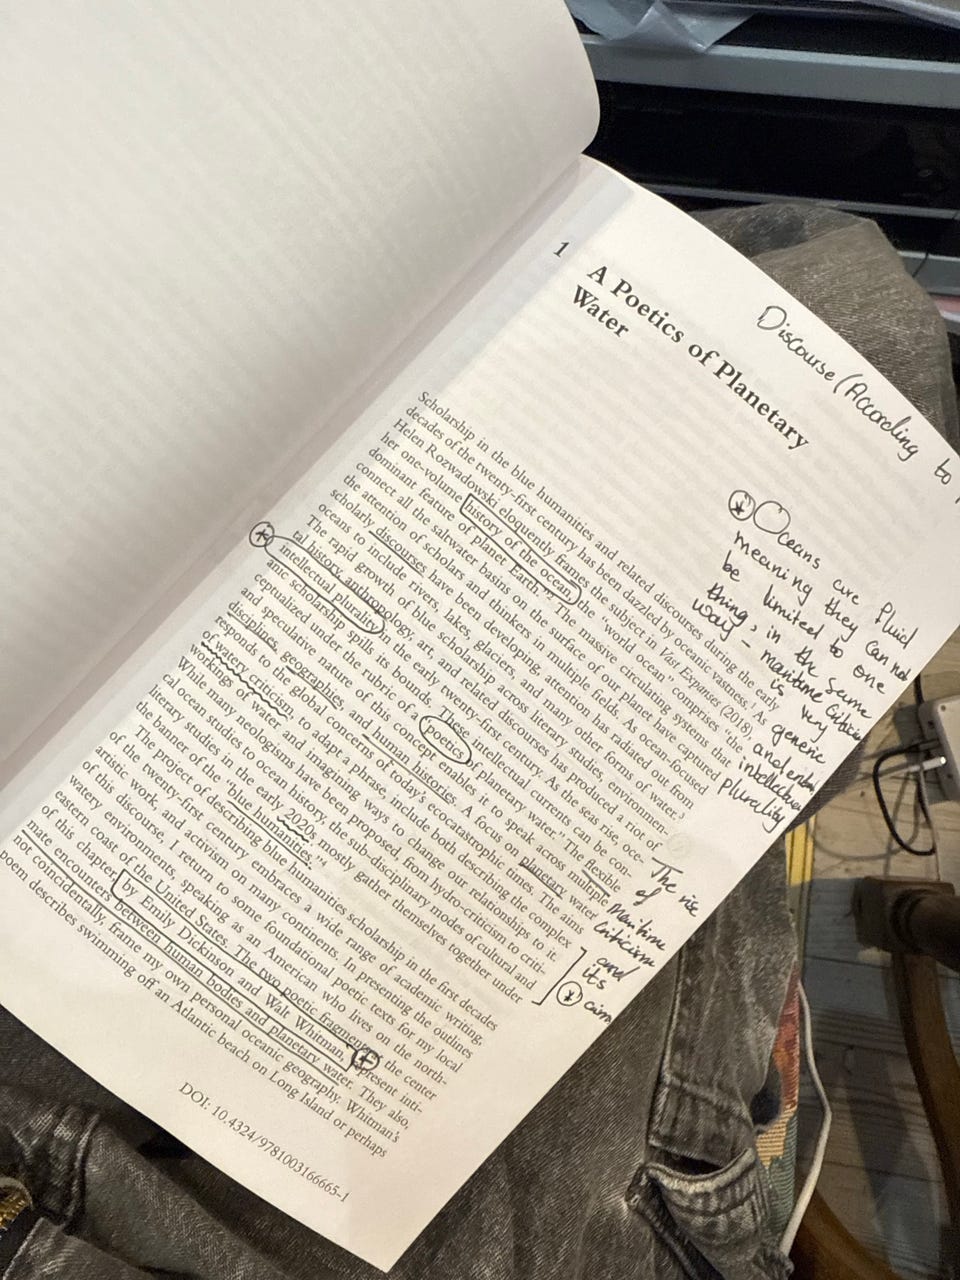 1 A Poetics of Planetary
Water
Discourse (According to
Scholarship in the blue humanities and related discourses during the early
decades of the twenty-first century has been dazzled by oceanic vastness.¹ As
Helen Rozwadowski eloquently frames the subject in Vast Expanses (2018),
her one-volume history of the ocean, the "world ocean" comprises "the
dominant feature of planet Earth."² The massive circulating systems that
connect all the saltwater basins on the surface of our planet have captured
the attention of scholars and thinkers in multiple fields. As ocean-focused
scholarly discourses have been developing, attention has radiated out from
oceans to include rivers, lakes, glaciers, and many other forms of water.³
The rapid growth of blue scholarship across literary studies, environmen-
tal history, anthropology, art, and related discourses has produced a riot of
intellectual plurality in the early twenty-first century. As the seas rise, oce-
anic scholarship spills its bounds. These intellectual currents can be con-
ceptualized under the rubric of a poetics of planetary water." The flexible
and speculative nature of this concept enables it to speak across multiple
disciplines, geographies, and human histories. A focus on planetary water
responds to the global concerns of today's ecocatastrophic times. The aims
of watery criticism, to adapt a phrase, include both describing the complex
workings of water and imagining ways to change our relationships to it.
While many neologisms have been proposed, from hydro-criticism to criti-
cal ocean studies to ocean history, the sub-disciplinary modes of cultural and
literary studies in the early 2020s mostly gather themselves together under
the banner of the "blue humanities."⁴
The project of describing blue humanities scholarship in the first decades
of the twenty-first century embraces a wide range of academic writing,
artistic work, and activism on many continents. In presenting the outlines
of this discourse, I return to some foundational poetic texts for my local
watery environments, speaking as an American who lives on the north-
eastern coast of the United States. The two poetic fragments the center
of this chapter, by Emily Dickinson and Walt Whitman, present inti-
mate encounters between human bodies and planetary water. They also,
not coincidentally, frame my own personal oceanic geography. Whitman's
poem describes swimming off an Atlantic beach on Long Island or perhaps
DOI: 10.4324/9781003166665-1
Oceans are fluid
meaning they can not
be limited to one
thing, in the same
way - maritime
is very
generic
and
intellectual
Plurality
The rise
of
maritime
criticism
and
it's
aims